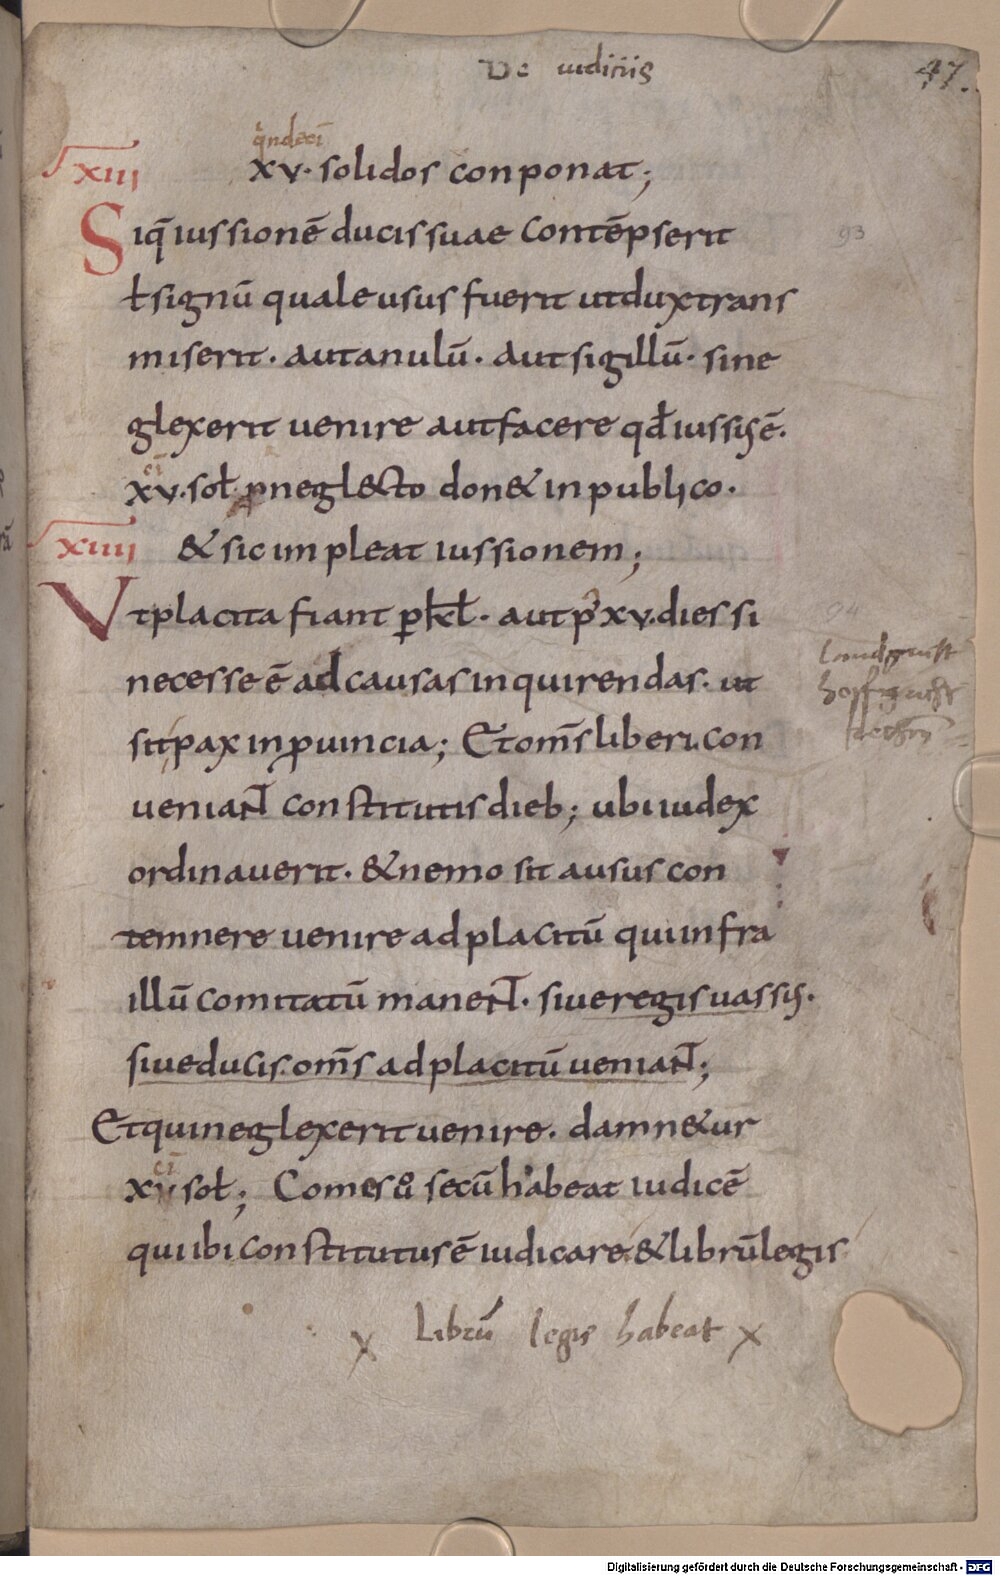 De iudiciis
47.
qindeci
XIII
xv. solidos conponat;
Siq̄ iussionē ducis suae contēpserit
ł signū quale usus fuerit ut dux trans
miserit. aut anulū. aut sigillū. si ne
glexerit uenire aut facere qđ iussisē.
ci
xv. soł. p neglecto don& in publico.
XIIII
& sic impleat iussionem;
Vt placita fiant ꝑ kł. aut p' xv. dies si
necesse ē ad causas inquirendas. ut
sit pax in ꝓuincia; Et om̄s liberi con
ueniant constitutis dieb; ubi iudex
ordinauerit. & nemo sit ausus con
temnere uenire ad placitū qui infra
illū comitatū manent. siue regis uassis.
siue ducis. om̄s ad placitū ueniant;
Et qui neglexerit uenire. damn&ur
ci
xv soł; Comes ů secū habeat iudicē
qui ibi constitutus ē iudicare. & librū legis
93
94
x Librū legis habeat x
Digitalisierung gefördert durch die Deutsche Forschungsgemeinschaft - DFG